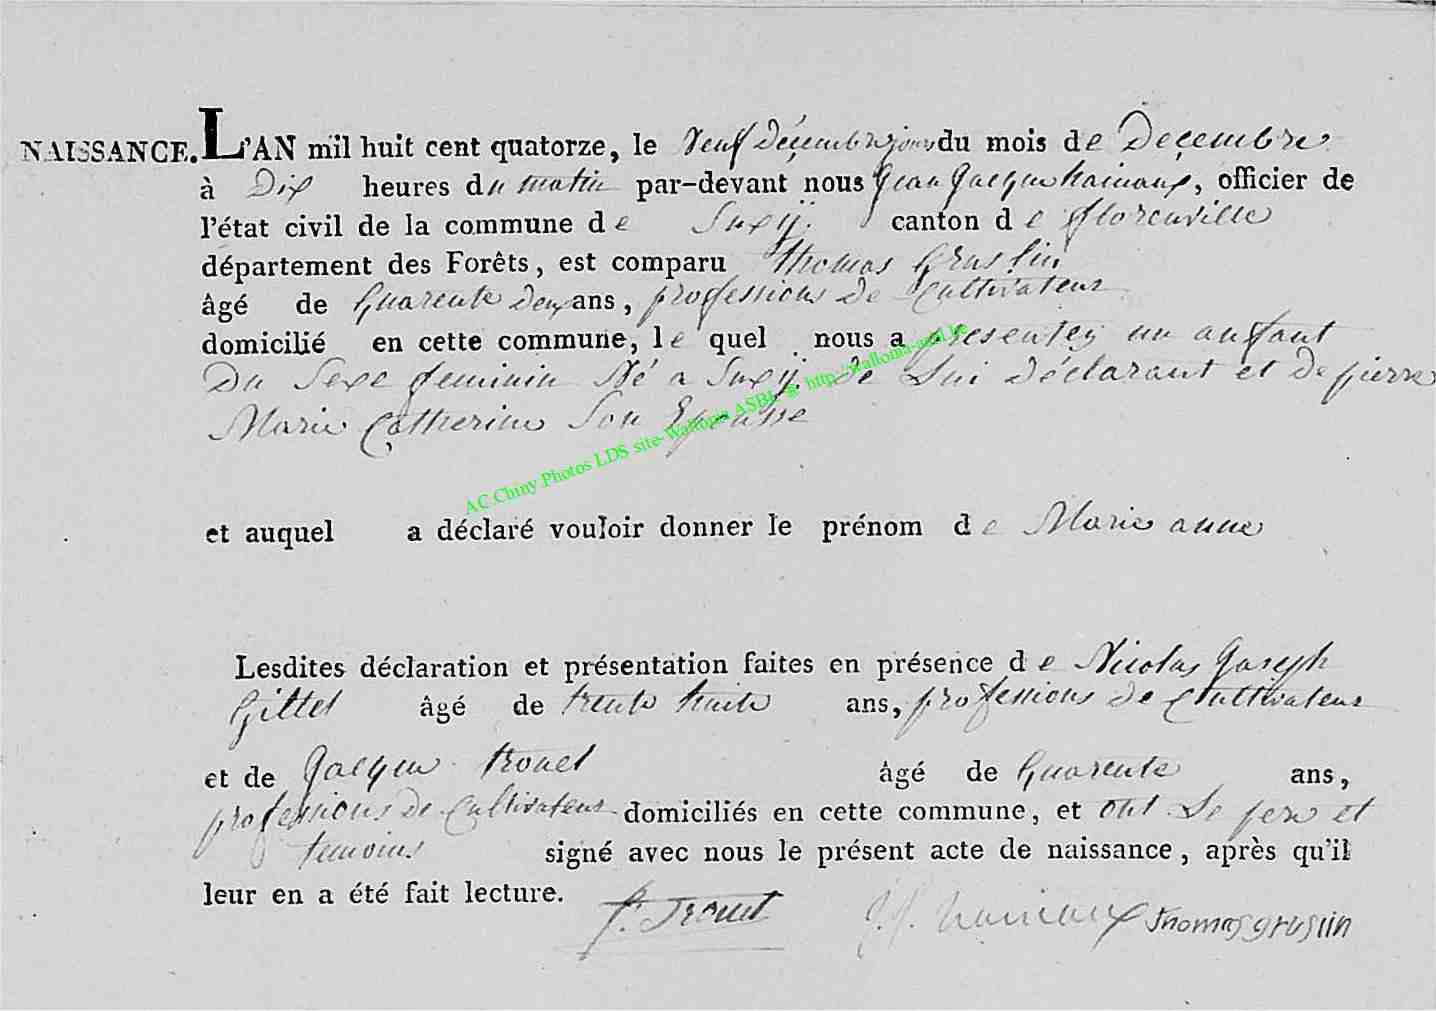 NAISSANCE. L'AN mil huit cent quatorze, le Neuf Deçembre jours du mois de Deçembre
à Dix heures du matin par-devant nous Jean Jacque hainaux, officier de
l'état civil de la commune de Suxÿ. canton de florenville
département des Forêts, est comparu thomas Gruslin
âgé de Quarente Deux ans, professions de Cultivateur
domicilié en cette commune, le quel nous a presentez un anfant
Du Sexe feminin Né a Suxÿ. de Lui déclarant et de pierre
Marie Catherine Son Epousse
AC Chiny Photos LDS site-Wallonia ASBL @ http://wallonia-asbl.be
et auquel a déclaré vouloir donner le prénom de Marie anne
Lesdites déclaration et présentation faites en présence de Nicolas Joseph
Gillet âgé de trente huite ans, professions de Cultivateur
et de Jacque trouet âgé de Quarente ans,
professions de Cultivateur domiciliés en cette commune, et ont Le pere et
temoins signé avec nous le présent acte de naissance, après qu'il
leur en a été fait lecture.
J. Trouet J. J. hainaux thomas gruslin